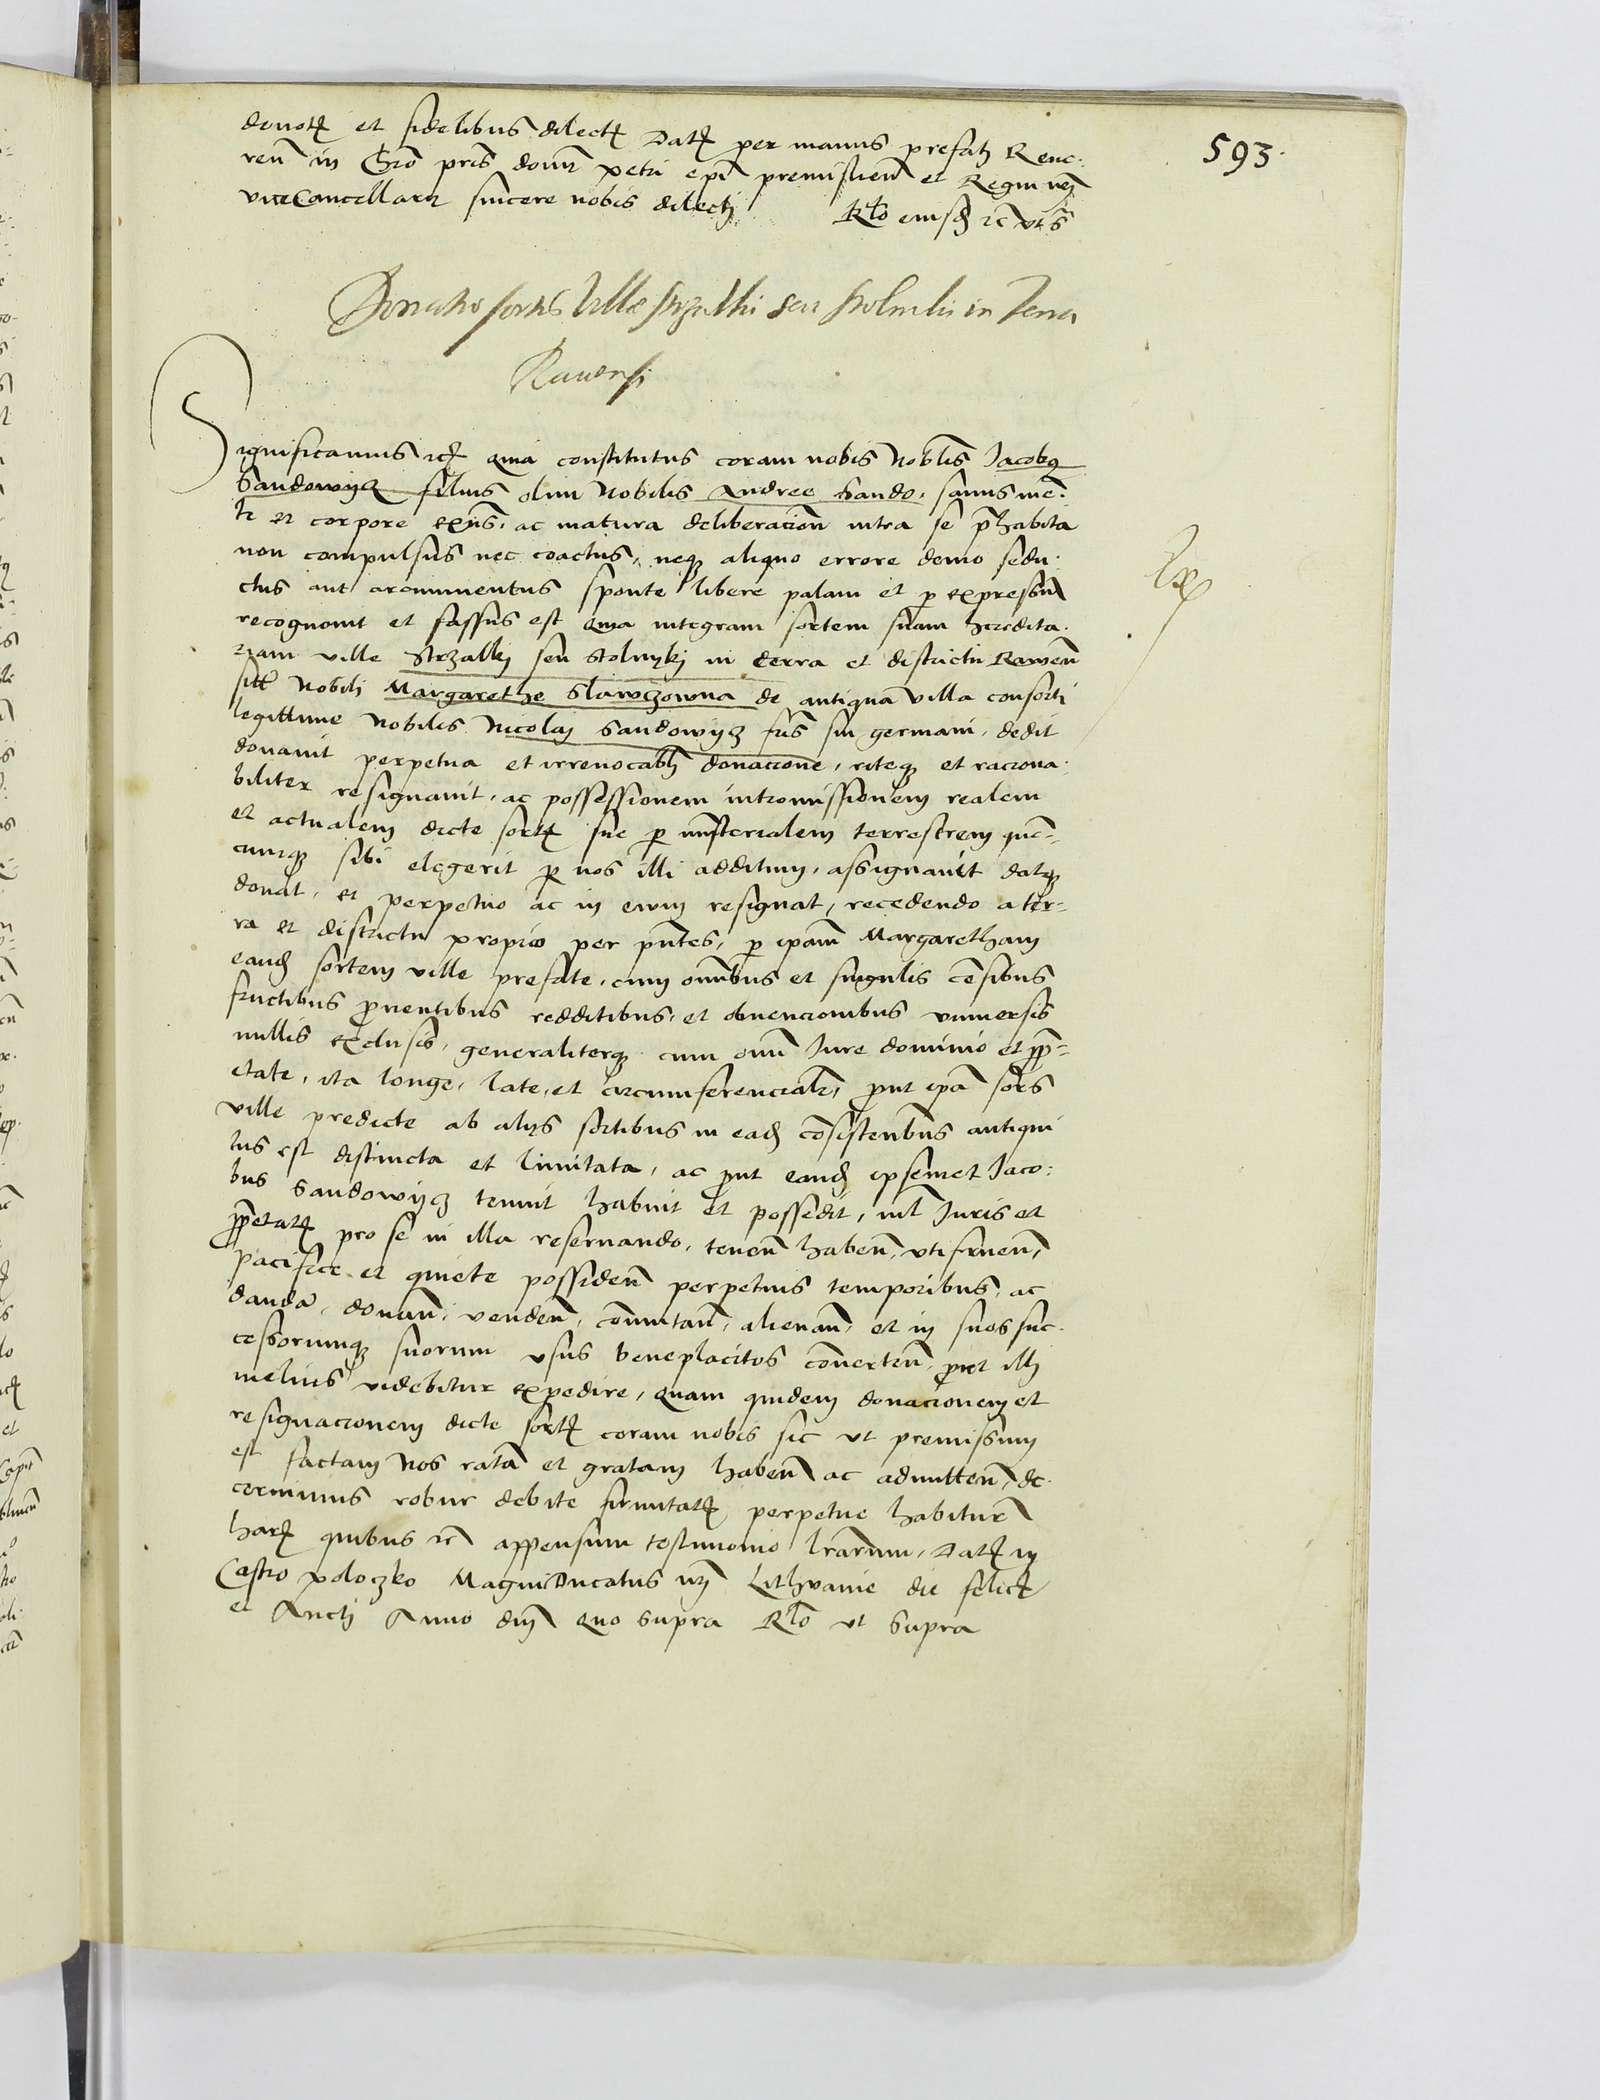 593.
deuotꝭ et fidelibus dilectꝭ Datꝭ per manus prefatj Reue:
ren̄ in Cr̄o pr̄is domī petri ep̄i premislien̄ et Regni nr̄j
viceCancellarij sincere nobis dilectj R̄lo eiusd̄ rc̄ vt s̄
Donatio sortis Villæ strzalki seu stolniki in Terra
Rauensi
Significamus rcꝭ quia constitutus coram nobis Nobilis Jacobꝰ
Sandowycz filius olim Nobilis Andree Sando, sanus men:
te et corpore exn̄s, ac matura deliberacion̄ intra se p̄habita
non compulsus nec coactus, neqꝫ aliquo errore deuio sedu:
ctus aut circumuentus sponte libere palam et p expressū
recognouit et fassus est quia integram sortem suam heredita:
riam ville Strzalkj seu Stolnykj in terra et districtu Rawen̄
sitā Nobilj Margarethe Slawczowna de antiqua villa consorti
legittime Nobilis Nicolaj Sandowycz fr̄is sui germani, dedit
donauit perpetua et irreuocablj donacione, riteqꝫ et raciona:
biliter resignauit, ac possessionem intromissionem realem
et actualem dicte sortꝭ sue p ministerialem terrestrem quē-
cunqꝫ sibi elegerit p nos illi additum, assignauit datqꝫ
donat, et perpetuo ac in euum resignat, recedendo a ter-
ra et districtu proprio per pn̄tes, p ip̄am Margaretham
eand̄ sortem ville prefate, cum omnibus et singulis cēsibus
fructibus ꝓuentibus redditibus, et obuencionibus vniuersis
nullis exclusis, generaliterqꝫ cum omni Jure dominio et ꝓpri-
etate, ita longe, late, et circumferencialr̄, ꝓut ip̄a sors
ville predicte ab alijs sortibus in ead̄ cōsistentibus antiqui
tus est distincta et limitata, ac ꝓut eand̄ ipsemet Jaco:
bus Sandowycz tenuit habuit et possedit, nil Juris et
ꝓprietatꝭ pro se in illa reseruando, tenen̄ haben̄, vtifruen̄,
pacifice et quiete possiden̄ perpetuis temporibus, ac
dandā, donan̄, venden̄, cōmutan̄, alienan̄, et in suos suc:
cessorumqꝫ suorum vsus beneplacitos cōuerten̄, ꝓut illj
melius videbitur expedire, quam quidem donacionem et
resignacionem dicte sortꝭ coram nobis sic vt premissum
est factam Nos ratā et gratam haben̄ ac admitten̄, de:
cernimus robur debite firmitatꝭ perpetue habiturā
harꝭ quibus rc̄ appensum testimonio lr̄arum, Datꝭ in
Castro poloczko Magni Ducatus nr̄j Lithvanie die felicꝭ
et Auctj Anno dn̄j quo supra R̄lo vt supra